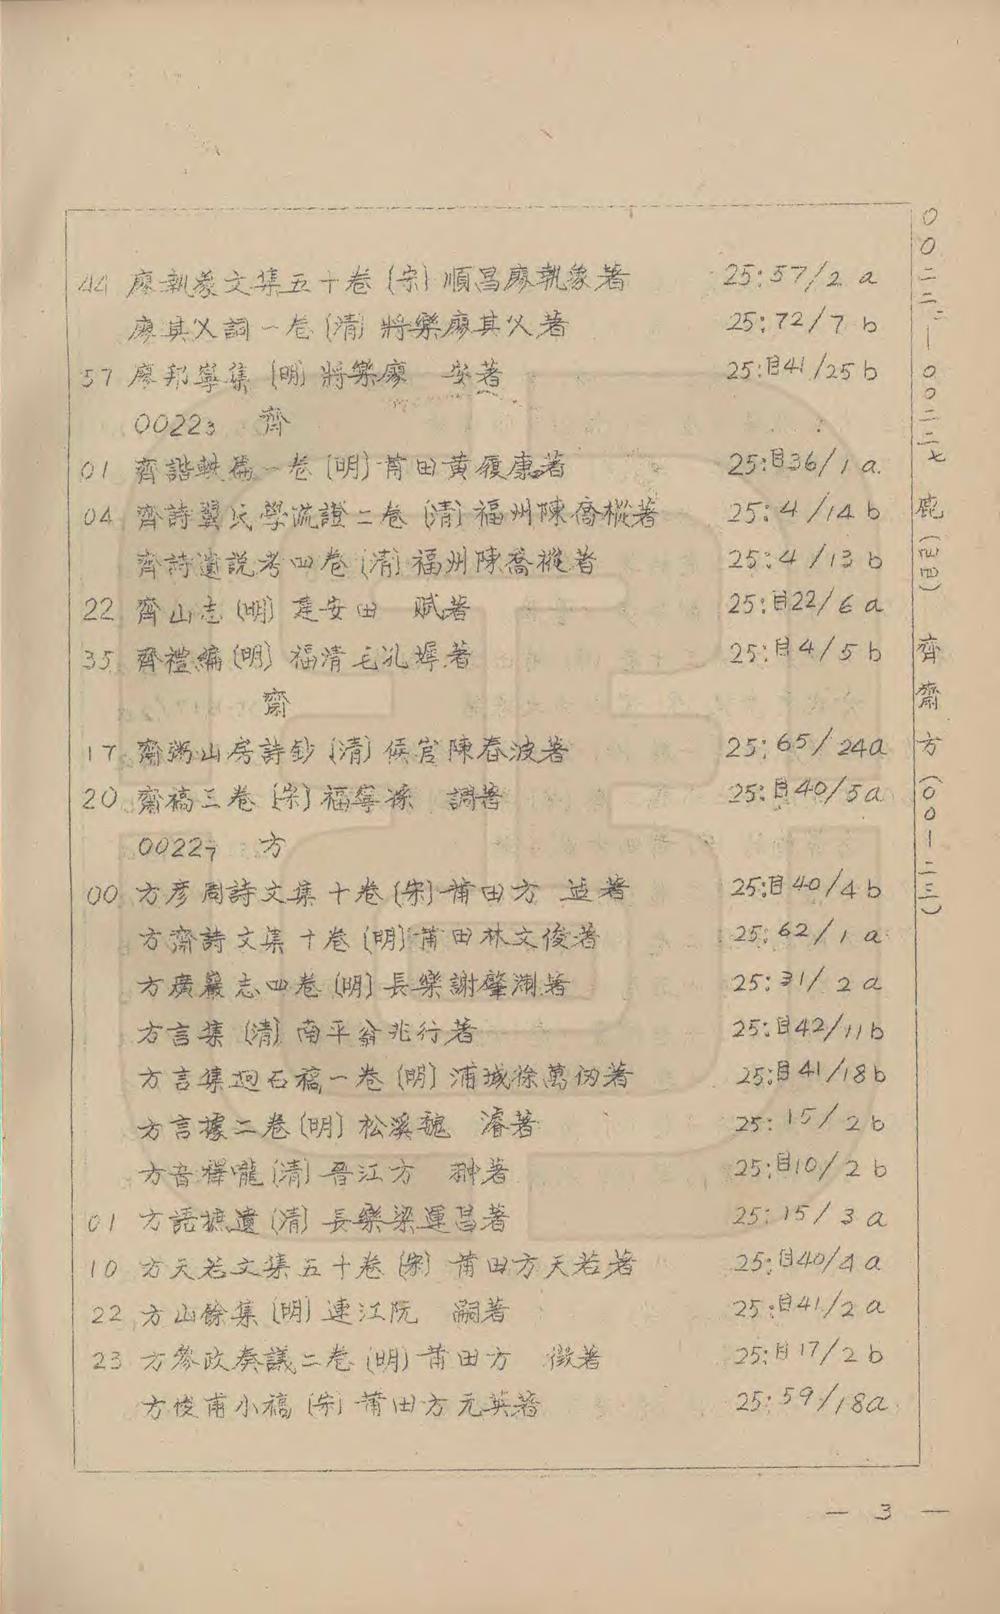 44 廖執象文集五十卷〔宋〕順昌廖執象著 25:57/2 a
廖其父詞一卷〔清〕將樂廖其父著 25:72/7 b
57 廖邦寧集〔明〕將樂廖 安著 25:目41/25 b
00223 齊
01 齊諧軼篇一卷〔明〕莆田黄履康著 25:目36/1 a
04 齊詩翼氏學疏證二卷〔清〕福州陳喬樅著 25:4/14 b
齊詩遺說考四卷〔清〕福州陳喬樅著 25:4/13 b
22 齊山志〔明〕建安田 賦著 25:目22/6 a
35 齊禮編〔明〕福清毛孔墀著 25:目4/5 b
齋
17 齋粥山房詩鈔〔清〕侯官陳春波著 25:65/24a
20 齋稿三卷〔宋〕福寧孫 調著 25:目40/5a
00227 方
00 方彦周詩文集十卷〔宋〕莆田方 著 25:目40/4 b
方齋詩文集十卷〔明〕莆田林文俊著 25:62/1 a
方廣巖志四卷〔明〕長樂謝肇淛著 25:31/2 a
方言集〔清〕南平翁兆行著 25:目42/11b
方言集迴石稿一卷〔明〕浦城徐萬仞著 25:目41/18b
方言據二卷〔明〕松溪魏 濬著 25:15/2 b
方音釋嚨〔清〕晋江方 翀著 25:目10/2 b
01 方語摭遺〔清〕長樂梁運昌著 25:15/3 a
10 方天若文集五十卷〔宋〕莆田方天若著 25:目40/4 a
22 方山餘集〔明〕連江阮 嗣著 25:目41/2 a
23 方參政奏議二卷〔明〕莆田方 徵著 25:目17/2 b
方俊甫小稿〔宋〕莆田方元英著 25:59/18a
〇〇二二二—〇〇二二七 鹿(目目) 齊齋方(〇〇—二三)
— 3 —